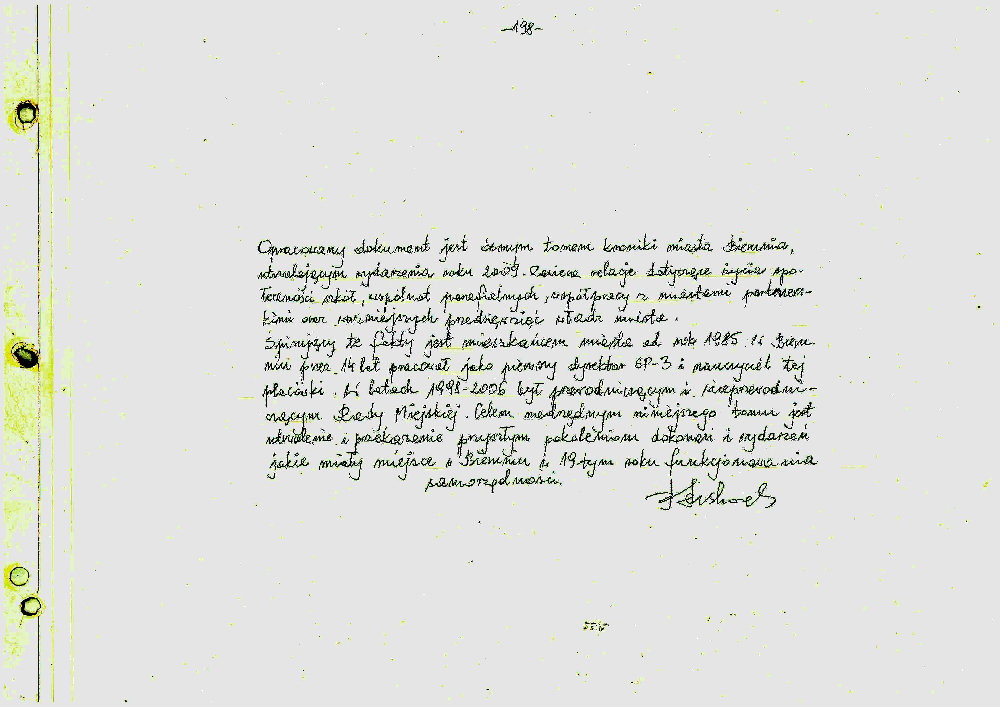 -198-
Opracowany dokument jest ósmym tomem kroniki miasta Bierunia,
utrwalającym wydarzenia roku 2009. Zawiera relacje dotyczące życia spo-
łeczności szkół, wspólnot parafialnych, współpracy z miastami partners-
kimi oraz ważniejszych przedsięwzięć władz miasta.
Spisujący te fakty jest mieszkańcem miasta od roku 1985. W Bieru-
niu przez 14 lat pracował jako pierwszy dyrektor SP-3 i nauczyciel tej
placówki. W latach 1998-2006 był przewodniczącym i wiceprzewodni-
czącym Rady Miejskiej. Celem nadrzędnym niniejszego tomu jest
utrwalenie i przekazanie przyszłym pokoleniom dokonań i wydarzeń
jakie miały miejsce w Bieruniu w 19-tym roku funkcjonowania
samorządności.